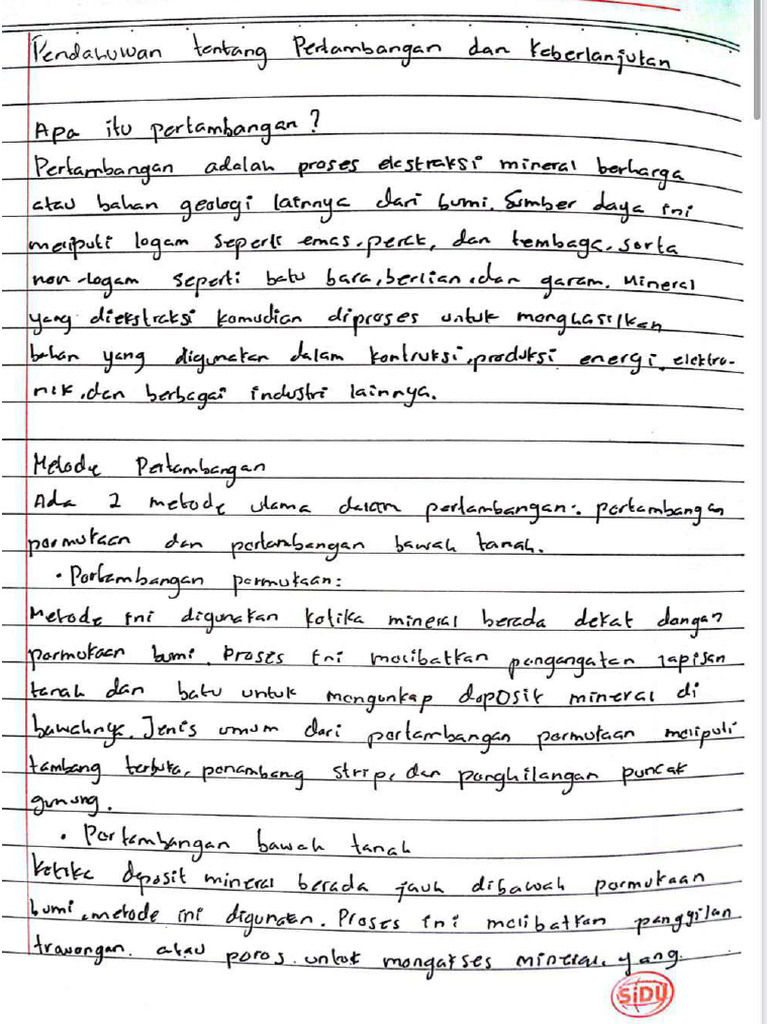 Pendahuwan tentang Pertambangan dan Keberlanjutan
Apa itu pertambangan?
Pertambangan adalah proses ekstraksi mineral berharga
atau bahan geologi lainnya dari bumi. Sumber daya ini
meliputi logam seperti emas, perak, dan tembaga, serta
non-logam seperti batu bara, berlian, dan garam. Mineral
yang diekstraksi kemudian diproses untuk menghasilkan
bahan yang digunakan dalam kontruksi, produksi energi, elektro-
nik, dan berbagai industri lainnya.
Metode Pertambangan
Ada 2 metode utama dalam pertambangan: pertambangan
permukaan dan pertambangan bawah tanah.
• Pertambangan permukaan:
Metode ini digunakan ketika mineral berada dekat dengan
permukaan bumi. Proses ini melibatkan pengangatan lapisan
tanah dan batu untuk mengunkap deposit mineral di
bawahnya. Jenis umum dari pertambangan permukaan meliputi
tambang terbuka, penambang strip, dan penghilangan puncak
gunung.
• Pertambangan bawah tanah
Ketika deposit mineral berada jauh dibawah permukaan
bumi, metode ini digunakan. Proses ini melibatkan penggilan
trawongan atau poros untuk mengakses mineral yang
SiDU